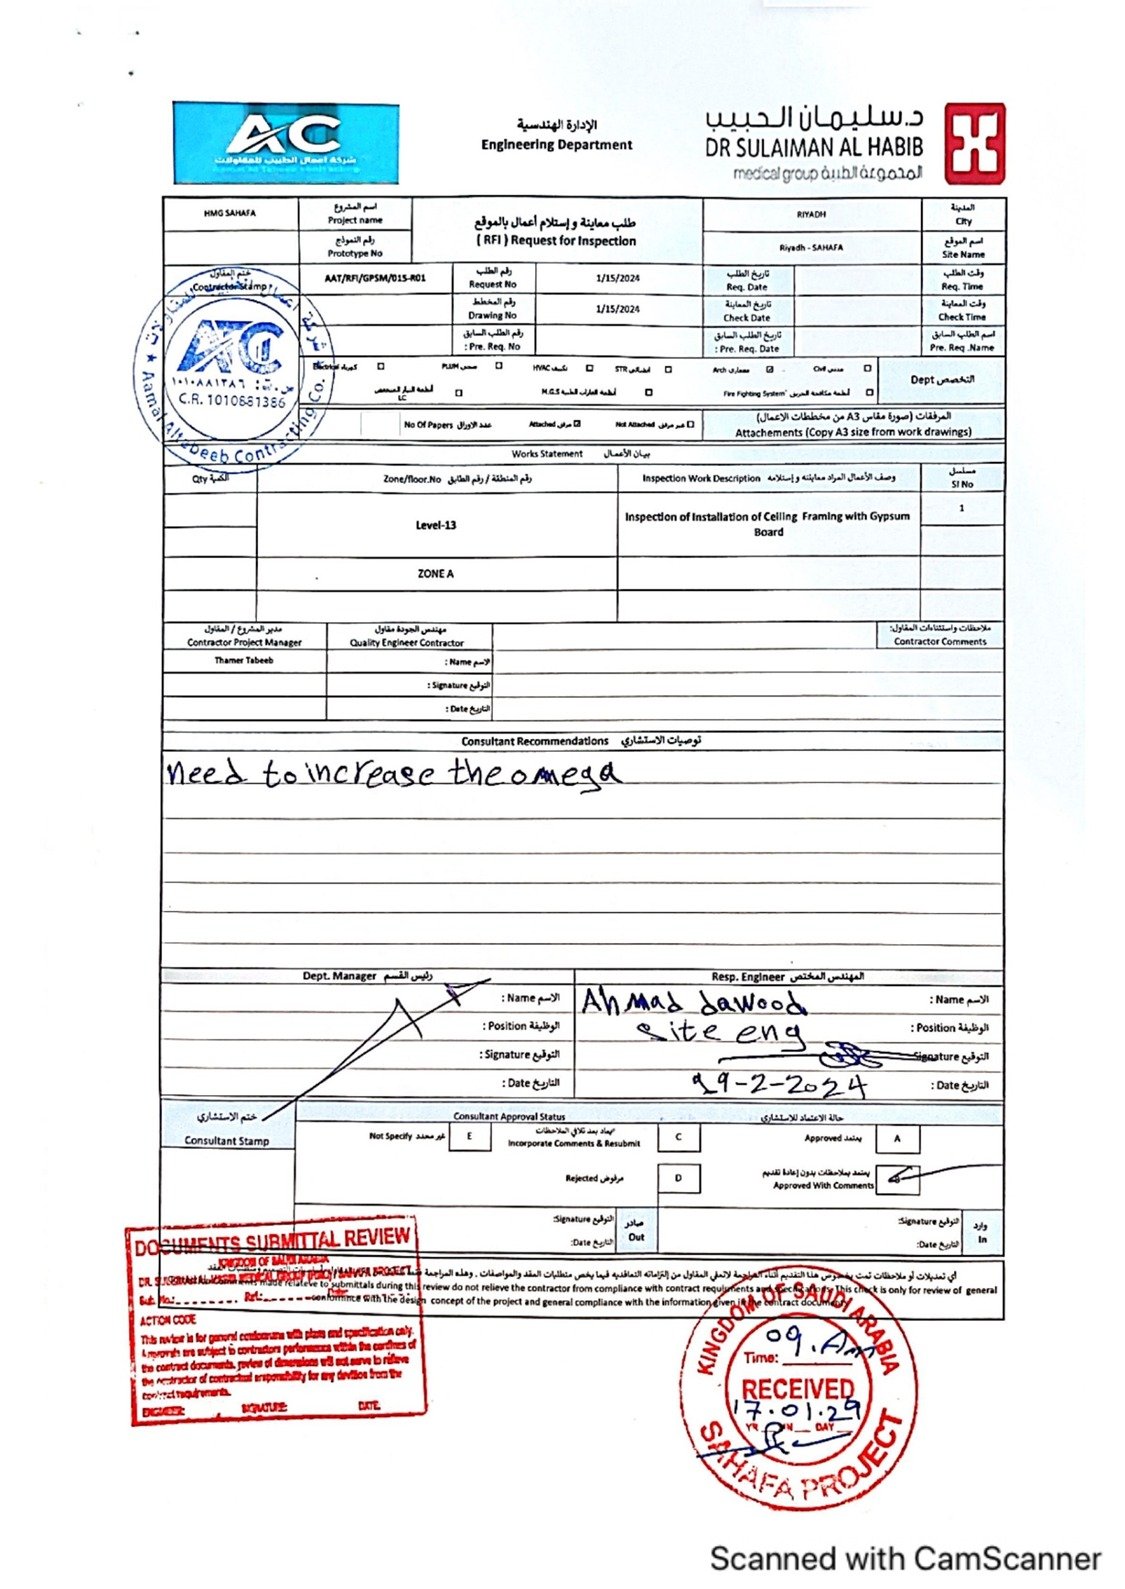 AC
شركة اعمال الطبيب للمقاولات
الإدارة الهندسية
Engineering Department
د.سليمان الحبيب
DR SULAIMAN AL HABIB
medical group المجموعة الطبية
HMG SAHAFA
اسم المشروع
Project name
طلب معاينة و إستلام أعمال بالموقع
( RFI ) Request for Inspection
RIYADH
المدينة
City
رقم النموذج
Prototype No
Riyadh - SAHAFA
اسم الموقع
Site Name
ختم المقاول
Contractor Stamp
AAT/RFI/GPSM/015-R01
رقم الطلب
Request No
1/15/2024
تاريخ الطلب
Req. Date
وقت الطلب
Req. Time
رقم المخطط
Drawing No
1/15/2024
تاريخ المعاينة
Check Date
وقت المعاينة
Check Time
رقم الطلب السابق
: Pre. Req. No
تاريخ الطلب السابق
: Pre. Req. Date
اسم الطلب السابق
Pre. Req .Name
ATC
س.ت: ١٠١٠٨٨١٣٨٦
C.R. 1010881386
Aamal AltaDeeb Contracting Co.
Electrical كهرباء
PLUM صحي
HVAC تكييف
STR انشائي
Arch معماري
Civil مدني
Dept التخصص
LC
M.G.S
Fire Fighting System أنظمة مكافحة الحريق
No Of Papers عدد الاوراق
Attached مرفق
Not Attached غير مرفق
المرفقات (صورة مقاس A3 من مخططات الاعمال)
Attachements (Copy A3 size from work drawings)
Works Statement بيان الأعمال
Qty الكمية
Zone/floor.No رقم المنطقة / رقم الطابق
Inspection Work Description وصف الأعمال المراد معاينته و إستلامه
مسلسل
SI No
Level-13
Inspection of Installation of Ceiling Framing with Gypsum
Board
1
ZONE A
مدير المشروع / المقاول
Contractor Project Manager
مهندس الجودة مقاول
Quality Engineer Contractor
ملاحظات واستثناءات المقاول:
Contractor Comments
Thamer Tabeeb
: Name الاسم
: Signature التوقيع
: Date التاريخ
Consultant Recommendations توصيات الاستشاري
need to increase the omega
Dept. Manager رئيس القسم
Resp. Engineer المهندس المختص
: Name الاسم
Ahmad dawood
: Name الاسم
: Position الوظيفة
site eng
: Position الوظيفة
: Signature التوقيع
Signature التوقيع
: Date التاريخ
29-2-2024
: Date التاريخ
ختم الاستشاري
Consultant Stamp
Consultant Approval Status
حالة الاعتماد للاستشاري
Not Specify غير محدد
E
يعاد بعد تلافي الملاحظات
Incorporate Comments & Resubmit
C
Approved يعتمد
A
Rejected مرفوض
D
يعتمد بملاحظات بدون إعادة تقديم
Approved With Comments
:Signature التوقيع
صادر
Out
:Date التاريخ
:Signature التوقيع
وارد
In
:Date التاريخ
DOCUMENTS SUBMITTAL REVIEW
KINGDOM OF SAUDI ARABIA
ACTION CODE
This review is for general conformance with plans and specification only.
Approvals are subject to contractors performance within the confines of
the contract documents. review of dimensions will not serve to relieve
the contractor of contractual responsibility for any deviation from the
contract requirements.
ENGINEER: SIGNATURE: DATE:
made relateve to submittals during this review do not relieve the contractor from compliance with contract requiments and specifications. This check is only for review of general
conformence with the design concept of the project and general compliance with the information given in the contract documents
KINGDOM OF SAUDI ARABIA
09. Am
Time:
RECEIVED
17.01.29
SAHAFA PROJECT
Scanned with CamScanner